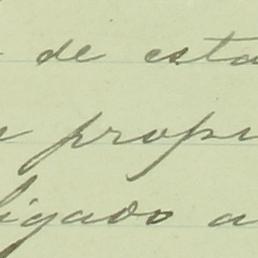 de esta
propi
ligado a